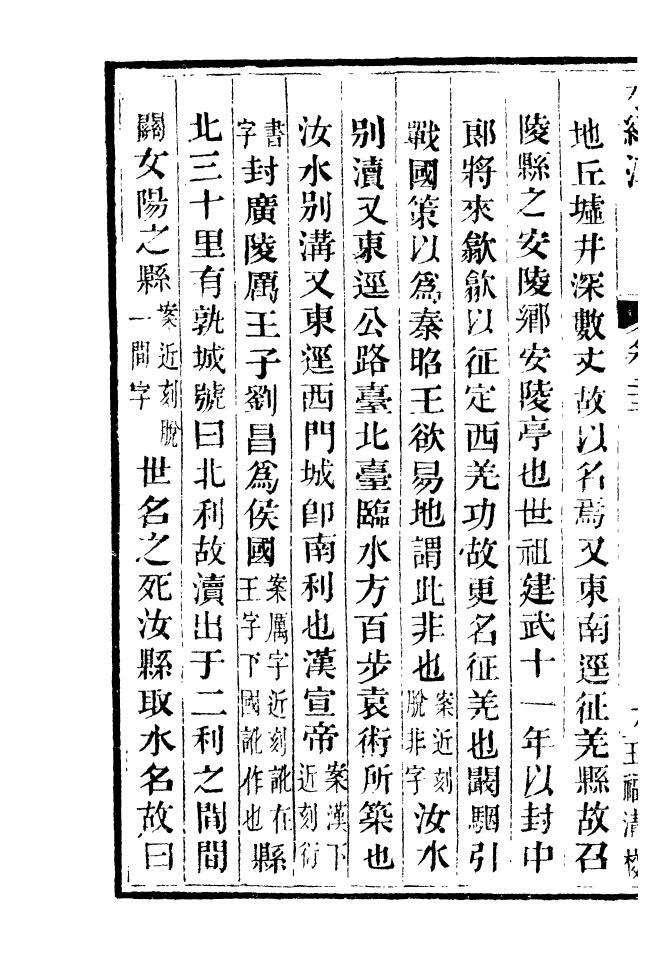 地丘墟井深數丈故以名焉又東南逕征羌縣故召
陵縣之安陵鄉安陵亭也世祖建武十一年以封中
郎將來歙歙以征定西羌功故更名征羌也闞駰引
戰國策以爲秦昭王欲易地謂此非也案近刻脫非字汝水
別瀆又東逕公路臺北臺臨水方百步袁術所築也
汝水別溝又東逕西門城卽南利也漢宣帝案漢下近刻衍
書字封廣陵厲王子劉昌爲侯國案厲字近刻訛在王字下國訛作也縣
北三十里有孰城號曰北利故瀆出于二利之間間
關女陽之縣案近刻脫一間字世名之死汝縣取水名故曰